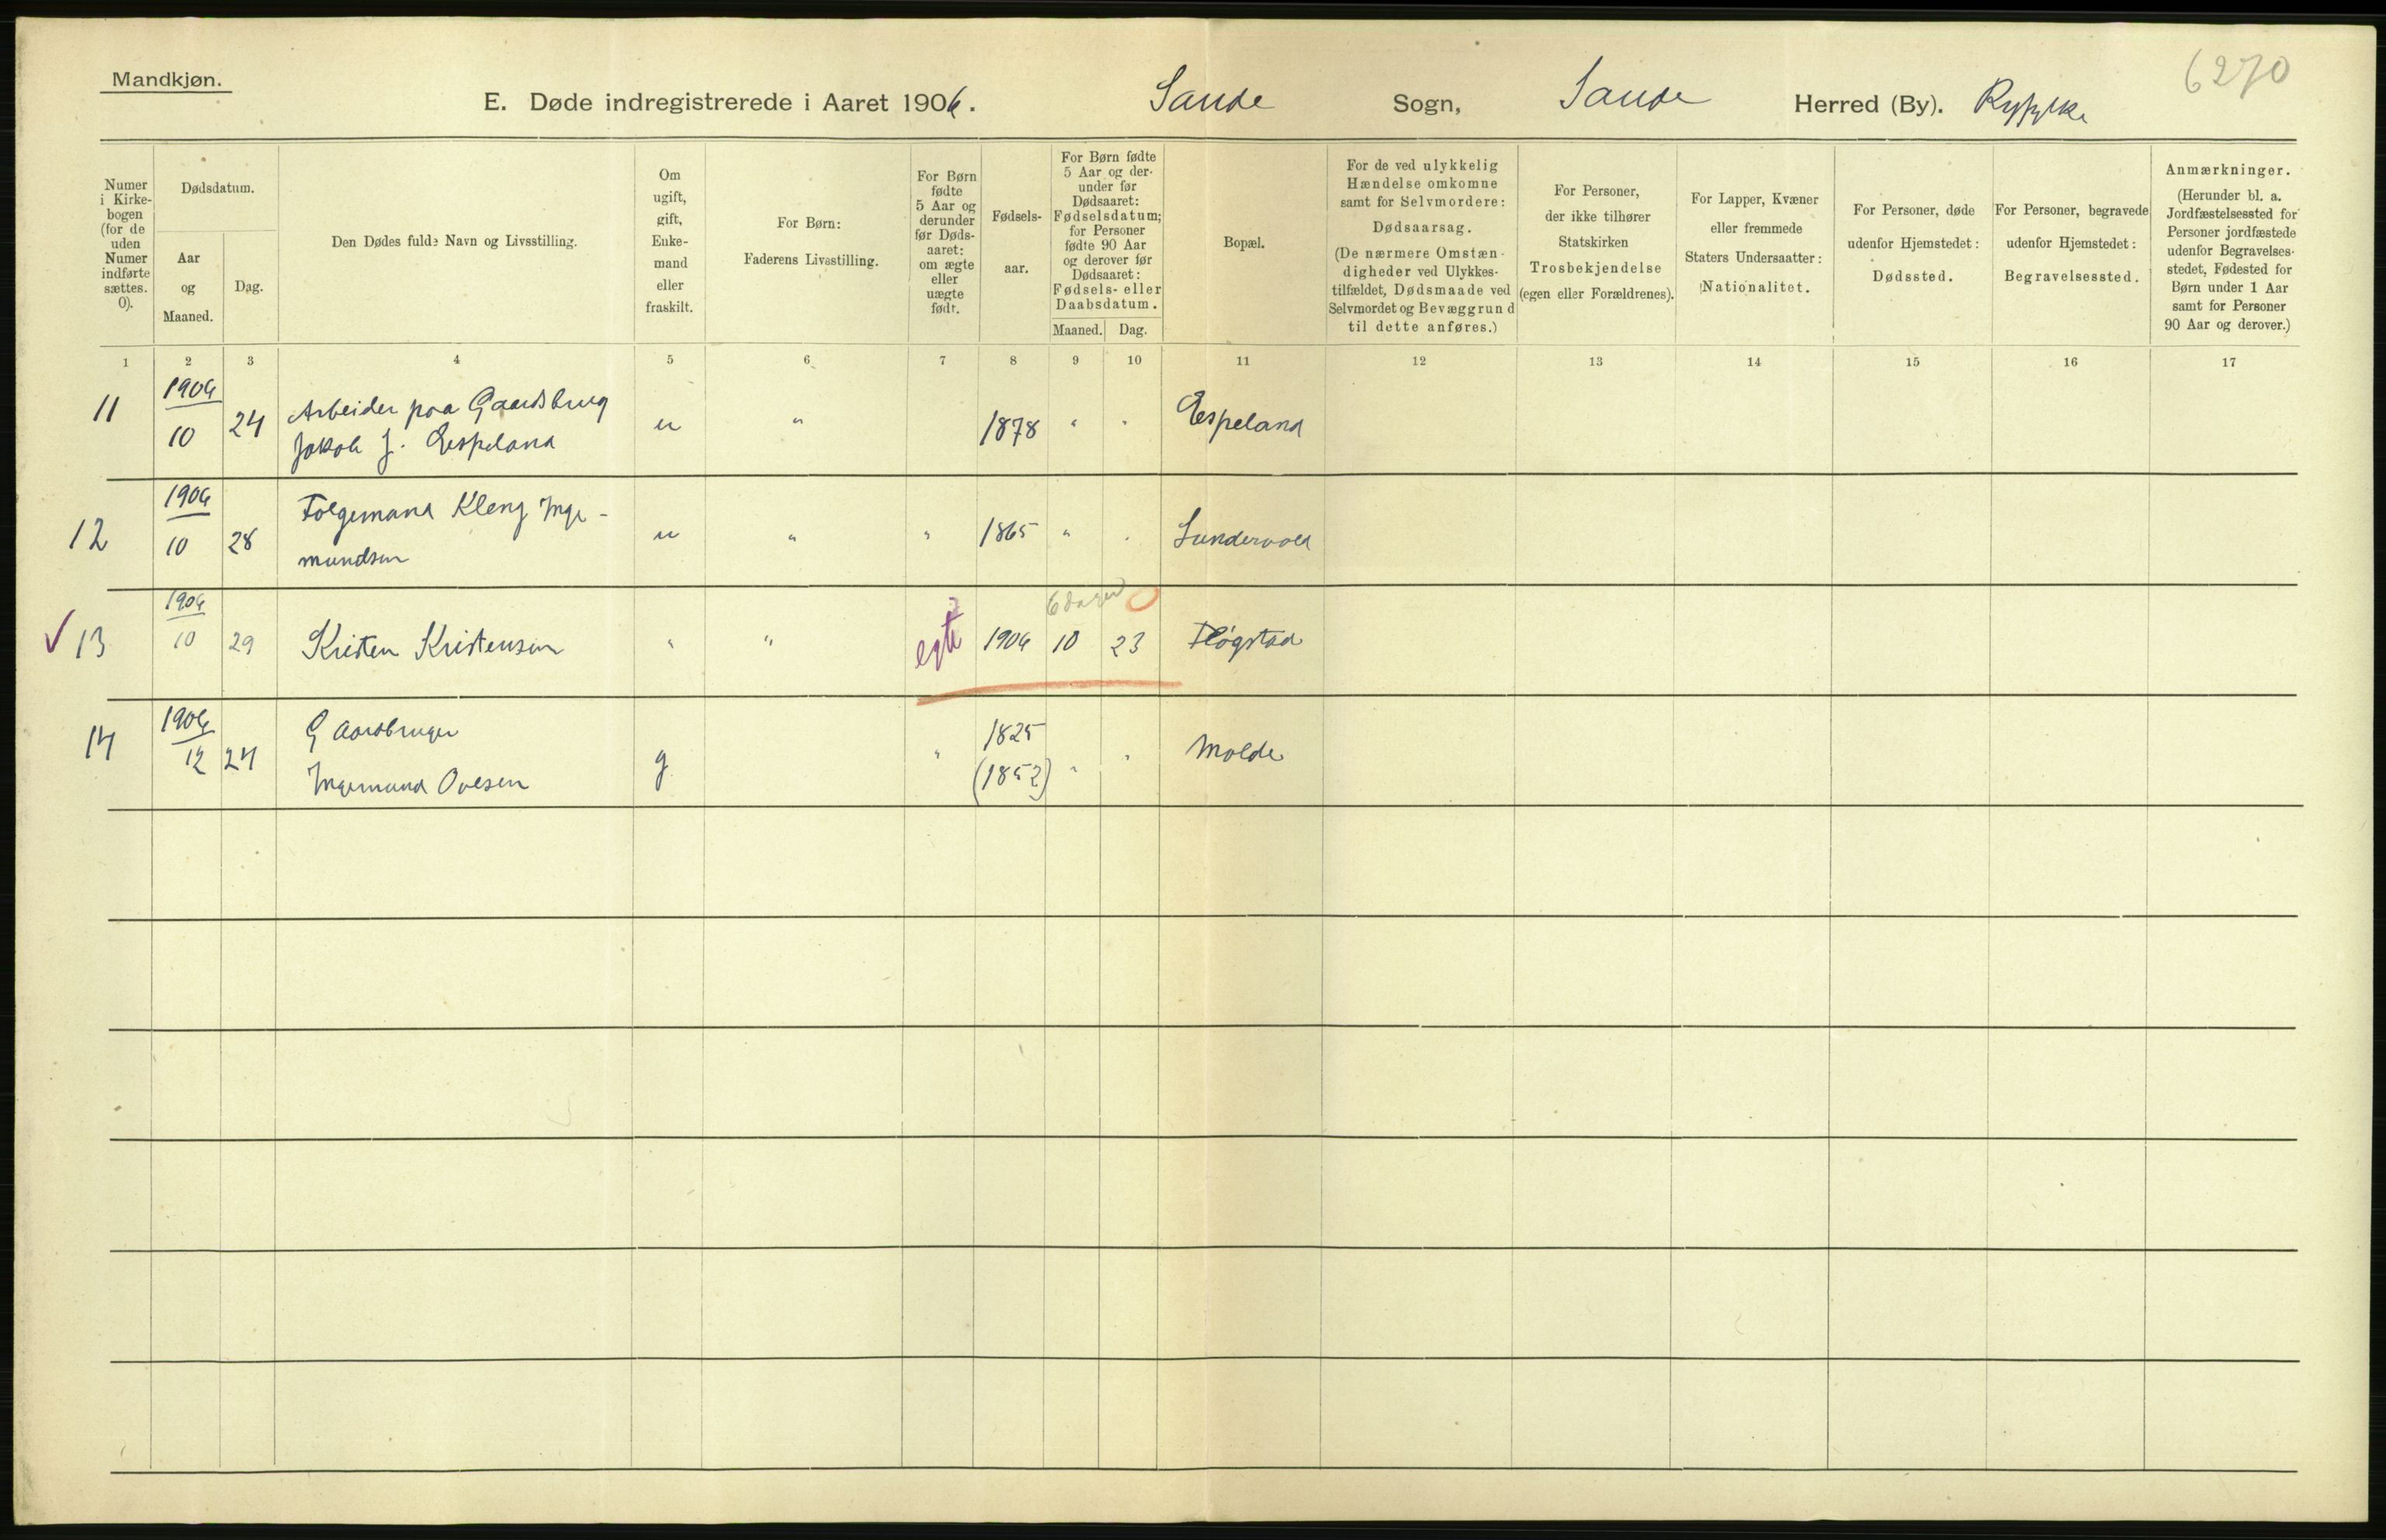 Mandkjøn.
6270
E. Døde indregistrerede i Aaret 1906. Sande Sogn, Sande Herred (By). Ryfylke
Numer
i Kirke-
bogen
(for de
uden
Numer
indførte
sættes.
0).
Dødsdatum.
Aar
og
Maaned.
Dag.
Den Dødes fulde Navn og Livsstilling.
Om
ugift,
gift,
Enke-
mand
eller
fraskilt.
For Børn:
Faderens Livsstilling.
For Børn
fødte
5 Aar og
derunder
før Døds-
aaret:
om ægte
eller
uægte
født.
Fødsels-
aar.
For Børn fødte
5 Aar og der-
under før
Dødsaaret:
Fødselsdatum;
for Personer
fødte 90 Aar
og derover før
Dødsaaret:
Fødsels- eller
Daabsdatum.
Maaned. Dag.
Bopæl.
For de ved ulykkelig
Hændelse omkomne
samt for Selvmordere:
Dødsaarsag.
(De nærmere Omstæn-
digheder ved Ulykkes-
tilfældet, Dødsmaade ved
Selvmordet og Bevæggrund
til dette anføres.)
For Personer,
der ikke tilhører
Statskirken
Trosbekjendelse
(egen eller Forældrenes).
For Lapper, Kvæner
eller fremmede
Staters Undersaatter:
Nationalitet.
For Personer, døde
udenfor Hjemstedet:
Dødssted.
For Personer, begravede
udenfor Hjemstedet:
Begravelsessted.
Anmærkninger.
(Herunder bl. a.
Jordfæstelsessted for
Personer jordfæstede
udenfor Begravelses-
stedet, Fødested for
Børn under 1 Aar
samt for Personer
90 Aar og derover.)
1 2 3 4 5 6 7 8 9 10 11 12 13 14 15 16 17
1906
11 10 24 Arbeider paa Gaardsbrug u " 1878 " " Espeland
Jakob J. Espeland
1906
12 10 28 Folgemand Kleng Inge- u " " 1865 " " Sundervold
mundsen
1906 6 dager 0
✓ 13 10 29 Kristen Kristensen " " egte 1906 10 23 Fløgstad
1906 Gaardbruger 1825
14 12 24 Ingemund Ovesen g " (1852) " " Molde